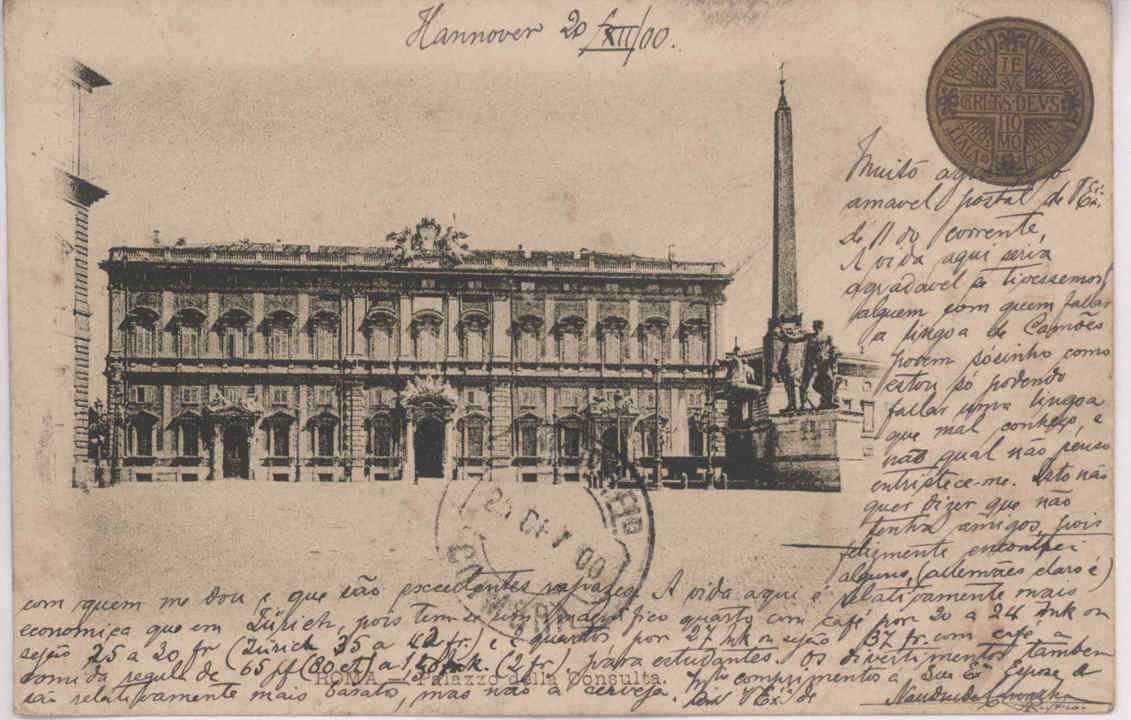 Hannover 20/XII/00.
REGNAT
IMPERAT
VIVIT
IE
SVS
CHRISTVS · DEVS
HO
MO
Muito
amavel postal de V. Exª.
de 11 do corrente,
A vida aqui seria
agradavel se tivessemos
alguem com quem fallar
a lingoa de Camões
porem sósinho como
estou só podendo
fallar uma lingoa
que mal conheço, e
na qual não penso
entristece-me. Isto não
quer dizer que não
tenha amigos, pois
felizmente encontrei
alguns, (allemães claro é)
com quem me dou e que são excellentes rapazes. A vida aqui é relativamente mais
economica que em Zürich, pois tem-se um magnifico quarto com café por 20 a 24 mk ou
sejão 25 a 30 fr (Zürich 35 a 42 fr.) e 2 quartos por 27 mk ou sejão 37 fr. com café, a
comida regula de 65 pf (80 ct) a 1,60 mk. (2 fr). para estudantes. Os divertimentos tambem
são relativamente mais barato, mas não a cerveja. comprimentos a Sua Exª Esposa e
V. Exª de
ROMA — Palazzo della Consulta.
00